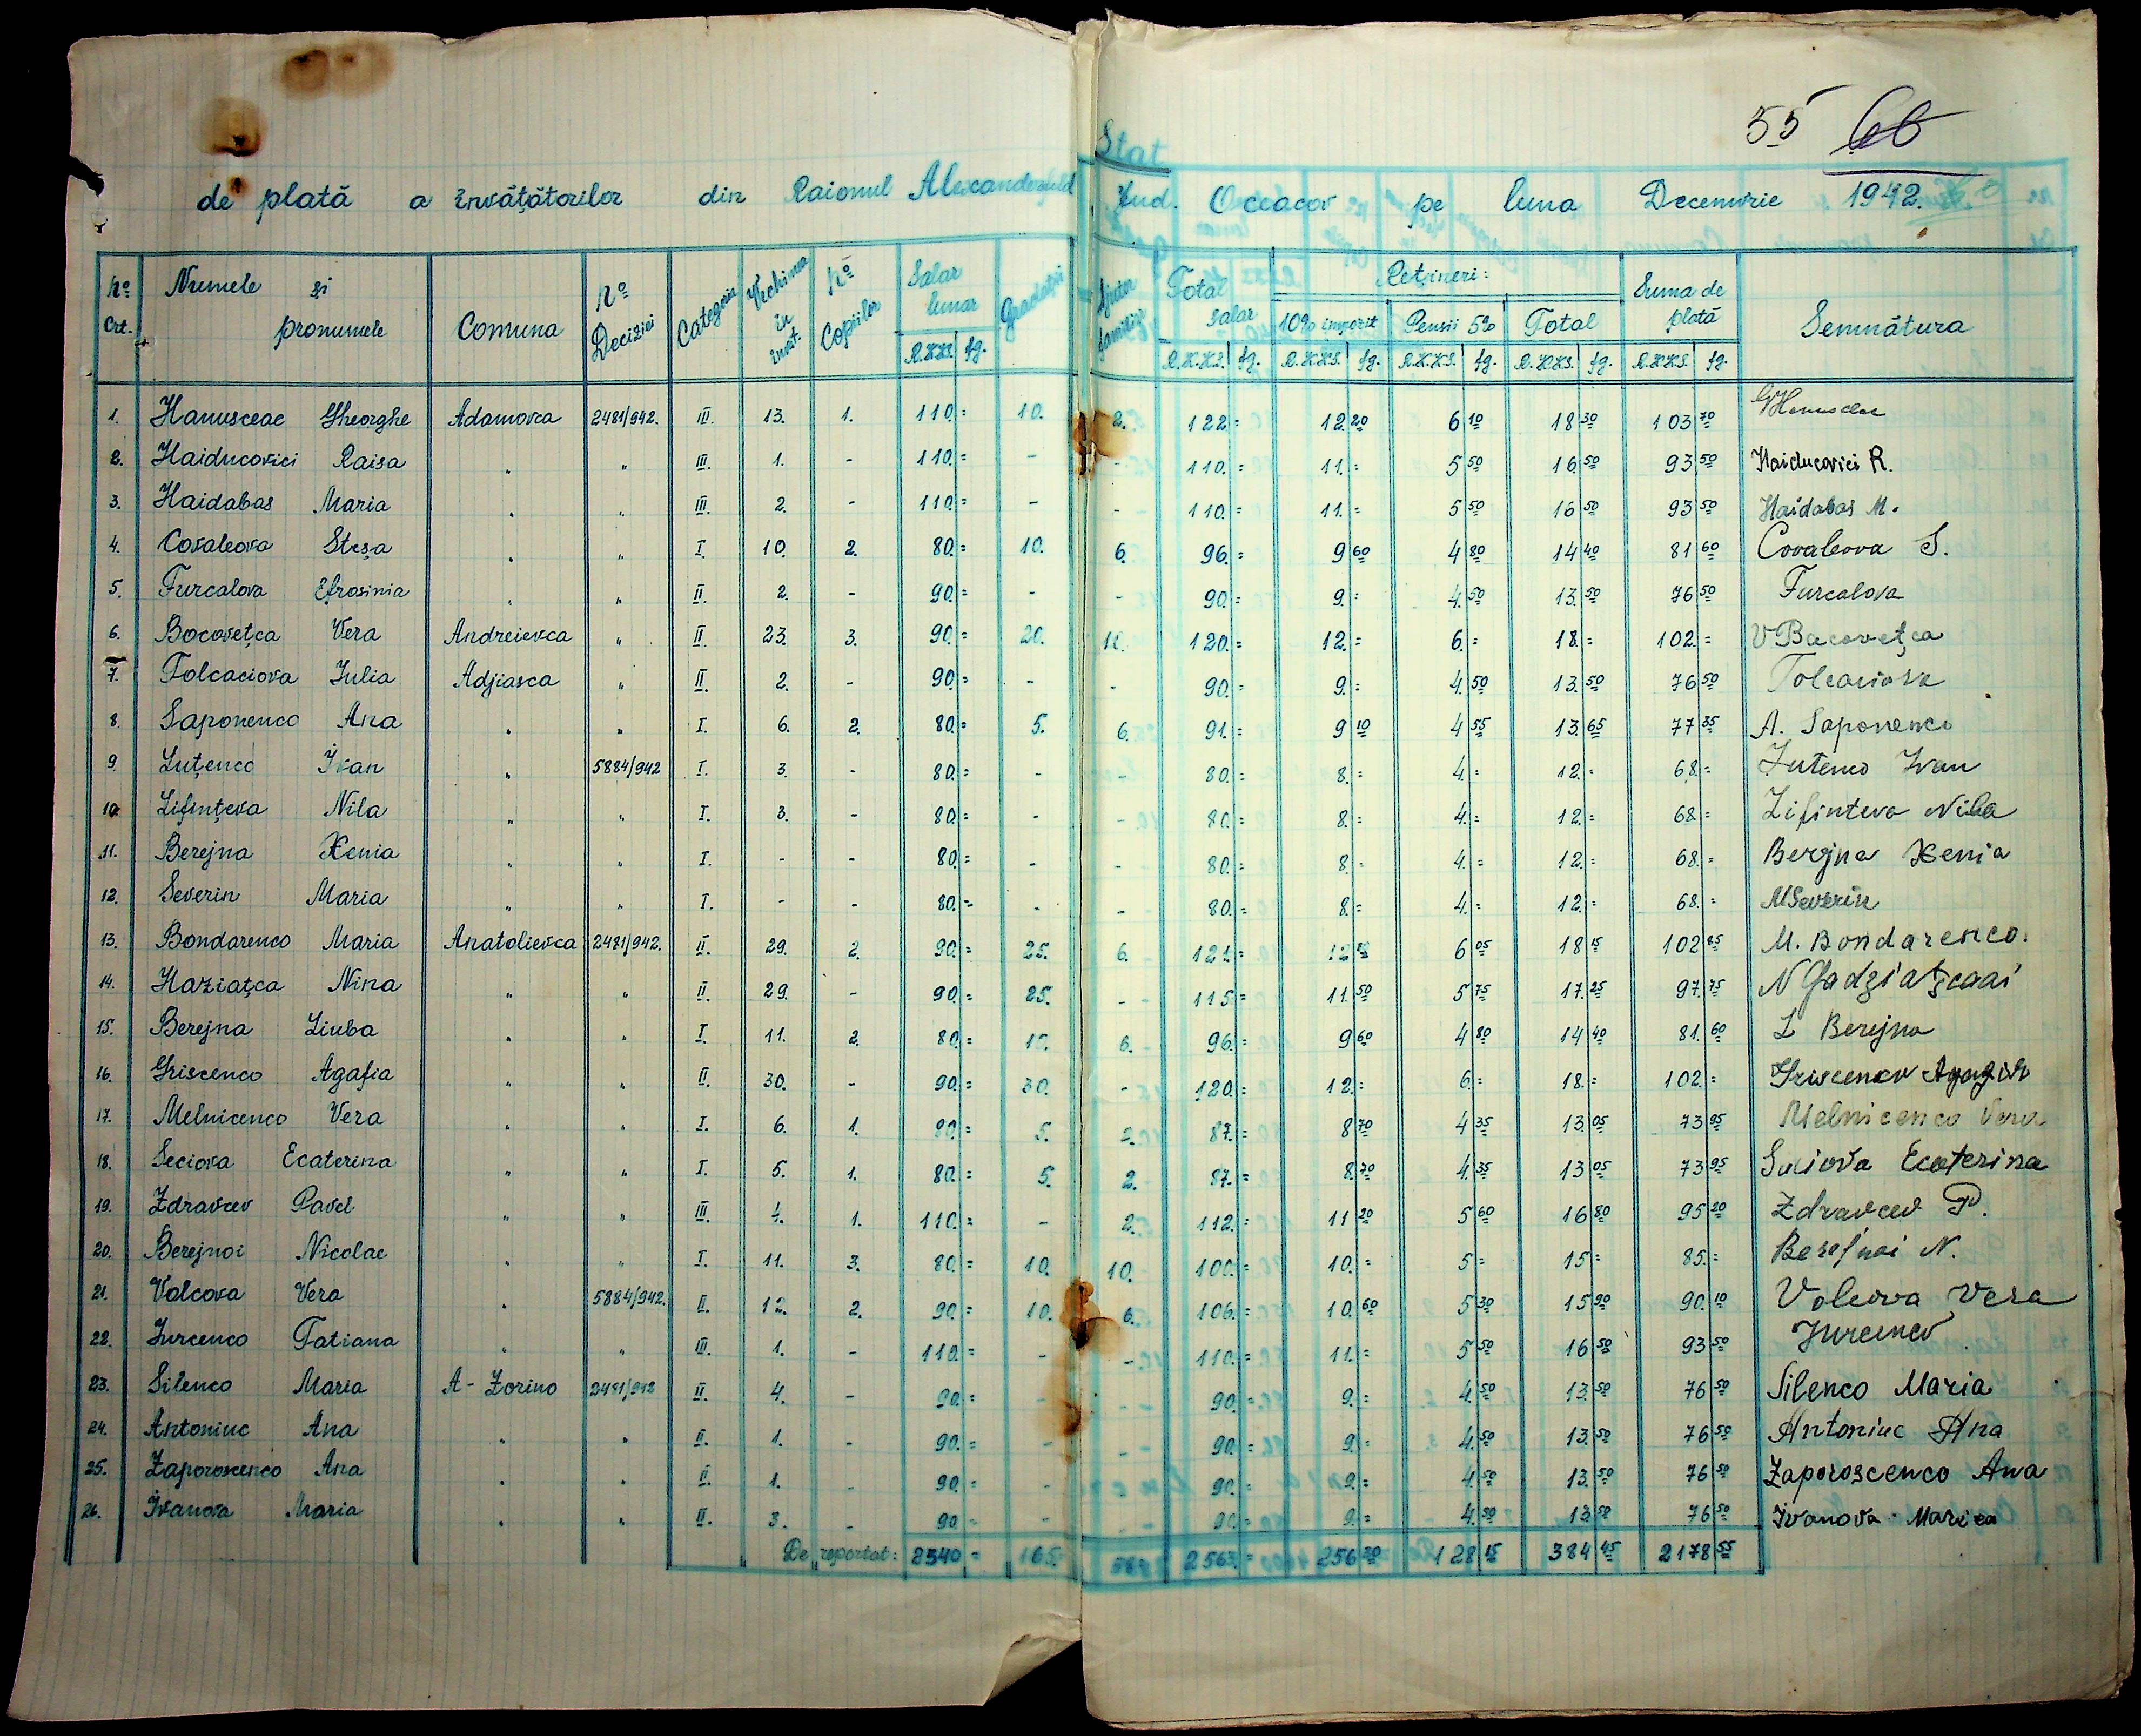 55 66
Stat
de plată a învățătorilor din Raionul Alexanderfeld Jud. Oceacov pe luna Decemvrie 1942.
No Crt. Numele și pronumele Comuna No Deciziei Categoria Vechimea în învăt. No Copiilor Salar lunar Gradații Ajutor familiar Total salar Rețineri: Suma de plată Semnătura
10% impozit Pensii 5% Total
R.K.K.S. fg. R.K.K.S. fg. R.K.K.S. fg. R.K.K.S. fg. R.K.K.S. fg. R.K.K.S. fg.
1. Hanusceac Gheorghe Adamovca 2481/942. III. 13. 1. 110.= 10. 2. 122= 12.20 6 10 18 30 103 70
2. Haiducovici Raisa " " III. 1. - 110.= - - 110.= 11.= 5 50 16 50 93 50 Haiducovici R.
3. Haidabas Maria " " III. 2. - 110.= - - 110.= 11.= 5 50 16 50 93 50 Haidabas M.
4. Covaleova Steșa " " I. 10. 2. 80.= 10. 6. 96.= 9 60 4 80 14 40 81 60 Covaleova S.
5. Turcalova Efrosinia " " II. 2. - 90.= - - 90.= 9.= 4.50 13.50 76 50 Turcalova
6. Bocovețca Vera Andreievca " II. 23. 3. 90.= 20. 10. 120.= 12.= 6.= 18.= 102.= V Bacovețca
7. Tolcaciova Iulia Adjiasca " II. 2. - 90.= - - 90.= 9.= 4.50 13.50 76 50 Tolcaciova
8. Saponenco Ana " " I. 6. 2. 80.= 5. 6. 91.= 9 10 4 55 13.65 77 35 A. Saponenco
9. Luțenco Ivan " 5884/942 I. 3. - 80.= - - 80.= 8.= 4.= 12.= 68.= Lutenco Ivan
10. Lifințeva Nila " " I. 3. - 80.= - - 80.= 8.= 4.= 12.= 68.= Lifinteva Nila
11. Berejna Xenia " " I. - - 80.= - - 80.= 8.= 4.= 12.= 68.= Berejna Xenia
12. Severin Maria " " I. - - 80.= - - 80.= 8.= 4.= 12.= 68.= M Severin
13. Bondarenco Maria Anatolievca 2481/942. II. 29. 2. 90.= 25. 6. 121.= 12 10 6 05 18 15 102 85 M. Bondarenco.
14. Haziațca Nina " " II. 29. - 90.= 25. - 115= 11.50 5 75 17.25 97.75 N
15. Berejna Liuba " " I. 11. 2. 80.= 10. 6. 96.= 9 60 4 80 14 40 81.60 L Berejna
16. Griscenco Agafia " " II. 30. - 90.= 30. - 120.= 12.= 6.= 18.= 102.= Griscenco
17. Melnicenco Vera " " I. 6. 1. 80.= 5. 2. 87.= 8 70 4 35 13.05 73 95 Melnicenco Vera
18. Seciova Ecaterina " " I. 5. 1. 80.= 5. 2. 87.= 8.70 4.35 13 05 73 95 Seciova Ecaterina
19. Zdravcev Pavel " " III. 4. 1. 110.= - 2. 112.= 11 20 5 60 16 80 95 20 Zdravcev P.
20. Berejnoi Nicolae " " I. 11. 3. 80.= 10. 10. 100.= 10.= 5= 15= 85.= Berejnoi N.
21. Volcova Vera " 5884/942. II. 12. 2. 90.= 10. 6. 106.= 10.60 5 30 15 90 90.10 Volcova Vera
22. Iurcenco Tatiana " " III. 1. - 110.= - - 110.= 11.= 5 50 16 50 93 50 Iurcenco
23. Silenco Maria A-Zorino 2481/942 II. 4. - 90.= - - 90.= 9.= 4.50 13.50 76 50 Silenco Maria
24. Antoniuc Ana " " II. 1. - 90.= - - 90.= 9.= 4.50 13.50 76 50 Antoniuc Ana
25. Zaporoscenco Ana " " II. 1. - 90.= - - 90.= 9.= 4.50 13.50 76 50 Zaporoscenco Ana
26. Ivanova Maria " " II. 3. - 90= - - 90.= 9.= 4.50 13 50 76 50 Ivanova Maria
De reportat: 2340= 165. 2563= 256 30 128 15 384 45 2178 55